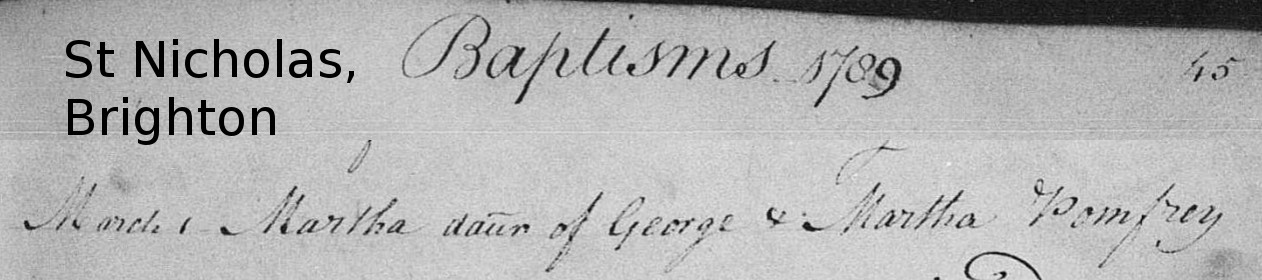 St Nicholas,
Brighton
Baptisms 1789 45
March 1 Martha daur of George & Martha Pomfrey